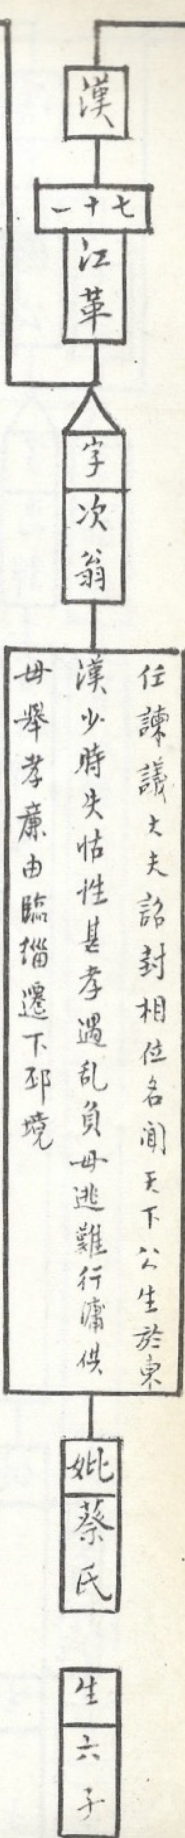 漢
七十一
江革
字
次翁
任諫議大夫詔封相位名聞天下公生於東
漢少時失怙性甚孝遇乱負母逃難行傭供
母舉孝廉由臨淄遷下邳境
妣
蔡氏
生
六子